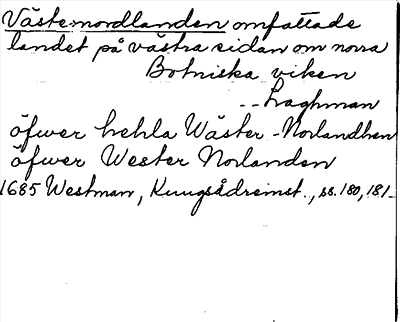 Västernordlanden omfattade
landet på västra sidan om norra
Botniska viken
-- Laghman
öfwer hehla Wäster-Norlandhen
öfwer Wester Norlanden
1685 Westman, Kungsådreinst., ss. 180, 181.